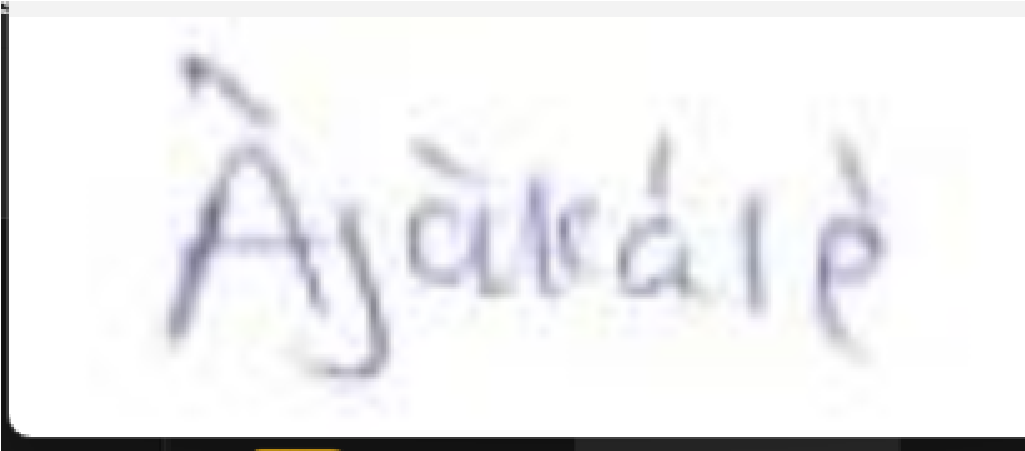 Àjàkálè